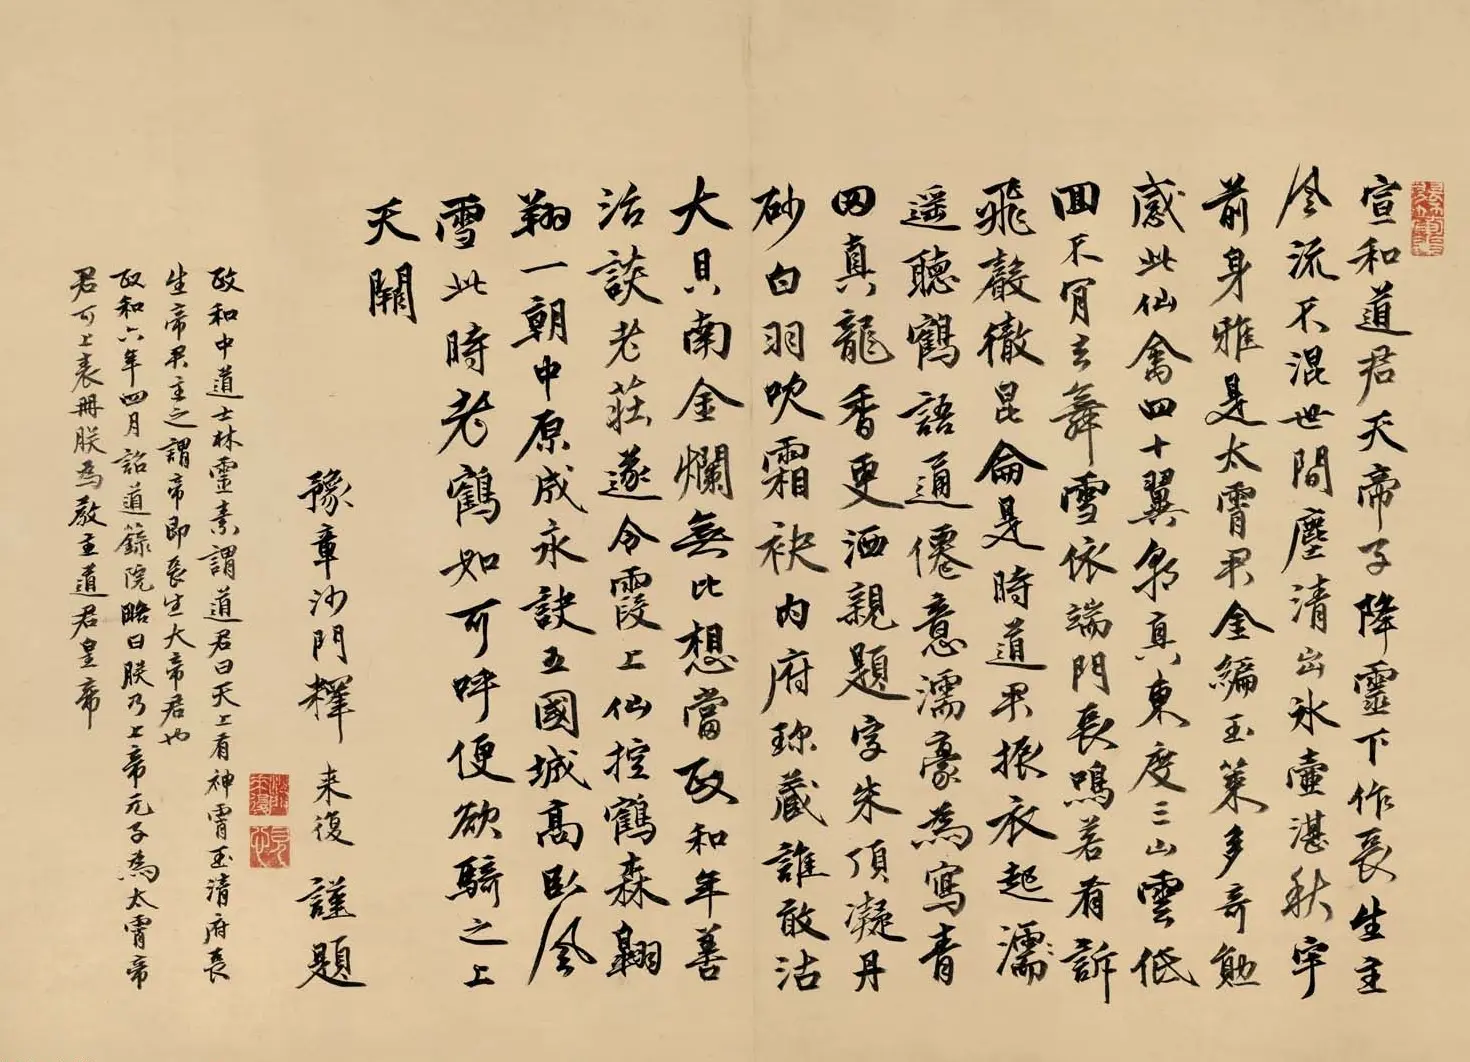 宣和道君天帝子降靈下作長生主
風流不混世間塵清出冰壺湛秋宇
前身雅是太霄君金編玉策多奇勲
感此仙禽四十翼朝真東度三山雲低
回不肯去舞雪依端門長鳴若有訴
飛聲徹昆侖是時道君振衣起濡
遥聽鶴語通僊意濡豪為寫青
田真龍香更洒親題字朱頂凝丹
砂白羽吹霜袂内府珎藏誰敢沽
大貝南金爛無比想當政和年善
治談老莊遂令霞上仙控鶴森翱
翔一朝中原成永訣五國城高臥風
雪此時老鶴如可呼便欲騎之上
天關
豫章沙門釋 来復 謹題
政和中道士林靈素謂道君曰天上有神霄玉清府長
生帝君主之謂帝即長生大帝君也
政和六年四月詔道籙院略曰朕乃上帝元子為太霄帝
君可上表冊朕為教主道君皇帝